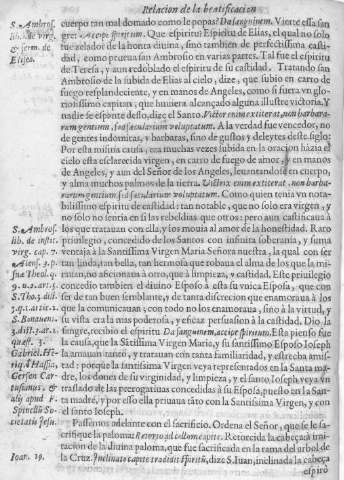 Relacion de la beatificacion
S. Ambros. lib. de virg. & serm. de Elíseo.
cuerpo tan mal domado como le popas? Da sanguinem. Vierte essa san
gre: Accipe spiritum. Que espiritu? Espiritu de Elias, el qual no solo
fue zelador de la honra divina, sino tambien de perfectissima casti
dad, como prueua san Ambrosio en varias partes. Tal fue el espiritu
de Teresa, y aun redoblado el espiritu de su caridad. Tratando san
Ambrosio de la subida de Elias al cielo, dize, que subio en carro de
fuego resplandeciente, y en manos de Angeles, como si fuera vn glo
riosissimo capitan, que huuiera alcançado alguna illustre victoria. Y
nadie se espante desso, dize el Santo. Victor enim extiterat, non barbara-
rum gentium, sed sæcularium voluptatum. A la verdad fue vencedor, no
de gentes indomitas, y barbaras, sino de gustos y deleytes deste siglo:
Por esta misma causa, era muchas vezes subida en la oracion hàzia el
cielo esta esclarecida virgen, en carro de fuego de amor, y en manos
de Angeles, y aun del mismo Señor de Angeles, leuantandose en cuerpo,
y alma muchos palmos de la tierra. Victrix enim extiterat, non barba-
rarum gentium sed sæcularium voluptatum. Como quien tenia vn nota-
bilissimo espiritu de castidad: tan notable, que no solo era virgen, y
no solo no sentia en si las rebeldias que otros: pero aun castificaua à
los que tratauan con ella, y los mouia al amor de la honestidad. Raro
priuilegio, concedido de los Santos con infinita soberania, y suma
ventaja à la Santissima Virgen Maria Señora nuestra, la qual con ser
tan linda, tan bella, tan hermosa que robaua el alma de los que la mi-
rauan, no aficionaua à otro, que à limpieza, y castidad. Este priuilegio
concedio tambien el diuino Esposo à esta su vnica Esposa, que con
ser de tan buen semblante, y de tanta discrecion que enamoraua à los
que la comunicauan, con todo no los enamoraua, sino à la virtud, y
su vista era la mas poderosa, y eficaz persuasion à la castidad. Dio la
sangre, recibio el espiritu Da sanguinem, accipe spiritum. Esta pienso fue
la causa, que la Sãtissima Virgen Maria, y su santissimo Esposo Ioseph
la amauan tanto, y tratauan con tanta familiaridad, y estrecha amis-
tad: porque la santissima Virgen veya representados en la Santa ma-
dre, los dones de su virginidad, y limpieza, y el santo Ioseph veya vn
traslado de las prerogatiuas concedidas à su Esposa, puesto en la San-
ta madre, y por esso ella priuaua tãto con la Santissima Virgen, y con
el santo Ioseph.
S. Ambros. lib. de instit. virg. cap. 7.
S. Tho. 3. dist.
S. Bonauent. 3. dist. 3. ar.
Gabriel.
Gerson Car
tusianus, &
alij apud F.
Spinellũ So
cietatis Iesu.
Passemos adelante con el sacrificio. Ordena el Señor, que se le sa-
crifique la paloma: Retorto ad collum capite. Retorcida la cabeça à imi-
tacion de la diuina paloma, que fue sacrificada en la rama del arbol de
la Cruz. Inclinato capite tradidit spiritũ, dize S. Iuan, inclinada la cabeça
Ioan. 19.
espirò